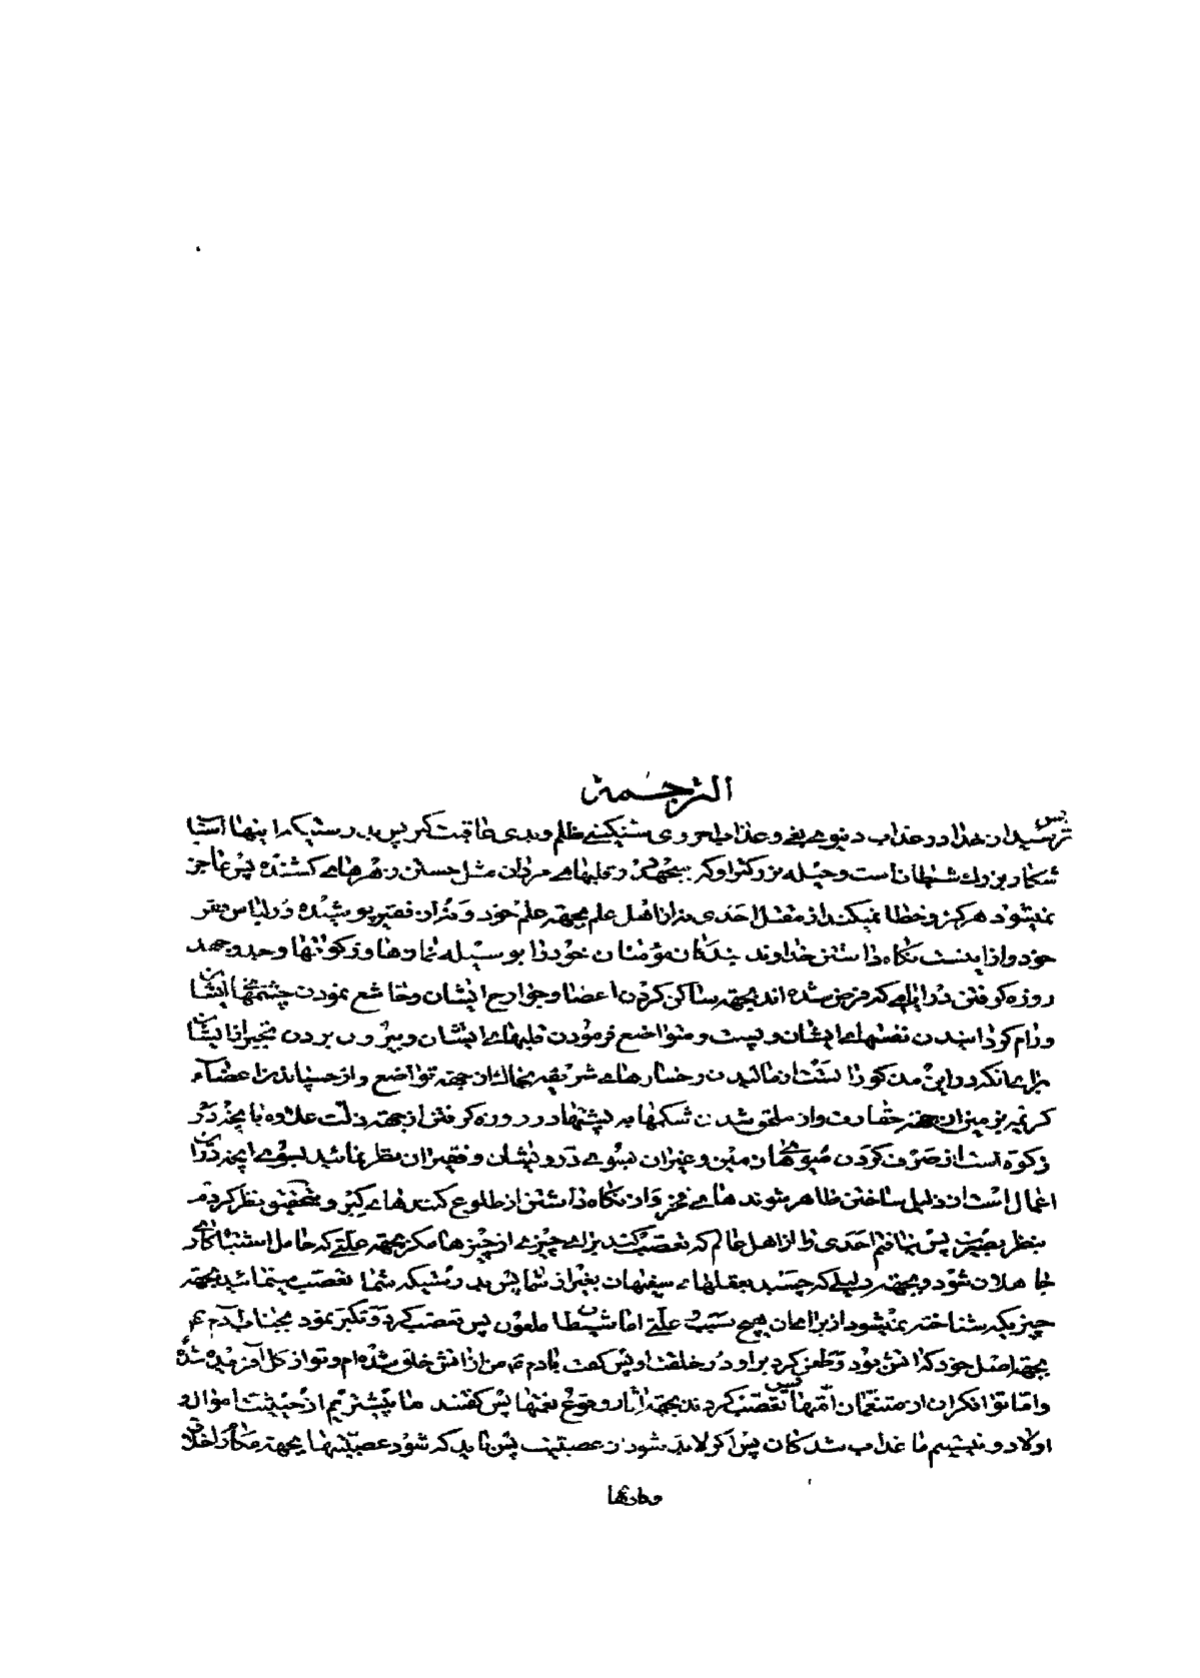 الترجمة
پس بترسید از خدا در عذاب دنیوی بغی و عذاب اخروی سنگینی ظلم و بدی عاقبت کبر پس بدرستیکه اینها است
شکار بزرك شیطان است و حیله بزرکتر او که میجهد در قلبهای مردان مثل جستن زهرهای کشنده پس عاجز
نمیشود هرکز و خطا نمیکند از مقتل احدی نه از اهل علم بجهة علم خود و نه از فقیر پوشیده در لباس فقر
خود و از اینست نکاه داشتن خداوند بندکان مؤمنان خود را بوسیله نمازها و زکوتها و جد و جهد
روزه کرفتن در ایامی که فرض شده اند بجهة ساکن کردن اعضا و جوارح ایشان و خاشع نمودن چشمهای ایشان
و رام کردانیدن نفسهای ایشان و پست و متواضع فرمودن قلبهای ایشان و بیرون بردن تکبر از ایشان
از برای آنکه در این مذکورات است از مالیدن رخسارهای شریفه بخاك از جهة تواضع و از چسپانیدن اعضاء
کریمه بزمین از جهة حقارت و از ملحق شدن شکمها به پشتها در روزه کرفتن از جهة ذلت علاوه با آنچه در
زکوة است از صرف کردن میوهای زمین و غیر آن بسوی درویشان و فقیران نظر نمائید بسوی آنچه در این
اعمال است از ذلیل ساختن ظاهر شوندهای فخر و از نکاه داشتن از طلوع کنندهای کبر و بتحقیق نظر کردم
بنظر بصیرت پس نیافتم احدی را از اهل عالم که تعصب کند برای چیزی از چیزها مکر بجهة علتی که حامل اشتباه کاری
جاهلان شود و بجهة دلیلی که چسبد بعقلهای سفیهان بغیر از شما پس بدرستیکه شما تعصب مینمائید بجهة
چیزیکه شناخته نمیشود از برای آن هیچ سببی و علتی اما شیطان ملعون پس تعصب کرد و تکبر نمود بجناب آدم ع
بجهة اصل خود که آتش بود و طعن کرد بر او در خلقت او پس کفت بآدم که من از آتش خلق شده ام و تو از کل آفریده شدهٔ
و اما توانکران از متنعمان امتها پس تعصب کردند بجهة آثار وقوع نعمتها پس کفتند ما بیشتریم از حیثیت اموال و
اولاد و نیستیم ما عذاب شدکان پس اکر لابد شود از عصبیت پس باید که شود عصبیتها بجهة مکارم اخلاق